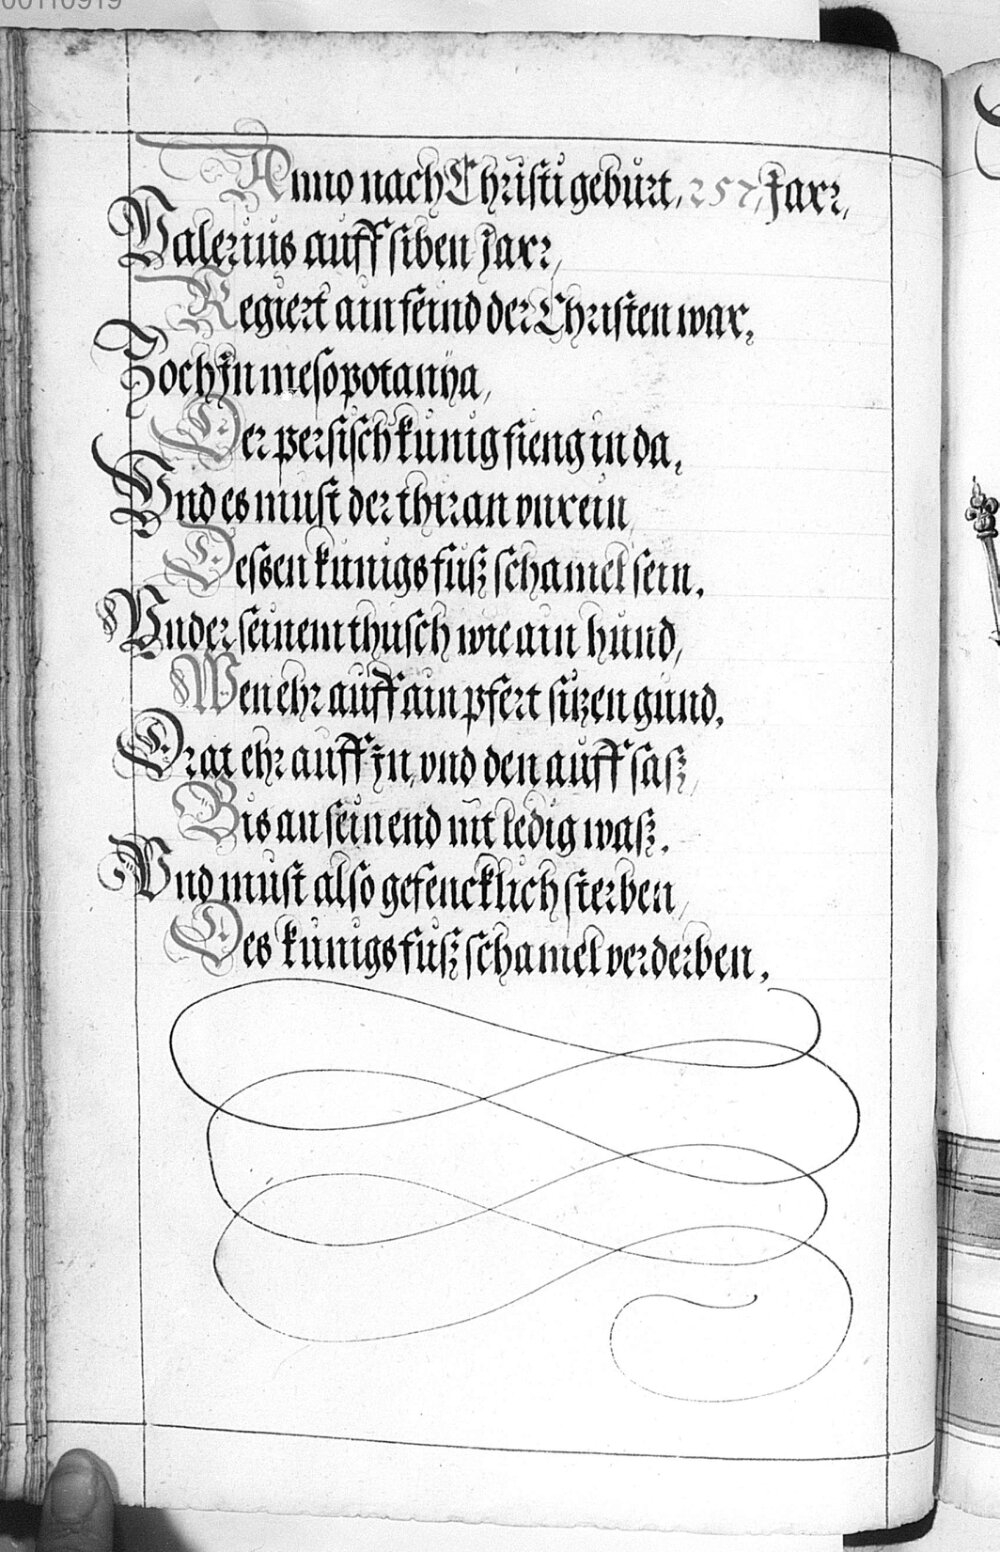 00110919
Anno nach Christi geburt, 257, Jarr,
Valerius auff siben Jarr,
Regiert ain feind der Christen war,
Zoch jn mesopotaniya,
Der persisch künig fieng in da,
Vnd es must der thiran vnrein
Dessen künigs fusz schamel sein,
Vnder seinem thusch wie ain hund,
Wen ehr auff ain pfert sitzen gund,
Drat ehr auff in, vnd den auff sasz,
Bis an sein end nit ledig wasz,
Vnd must also gefencklich sterben,
Des künigs fusz schamel verderben,